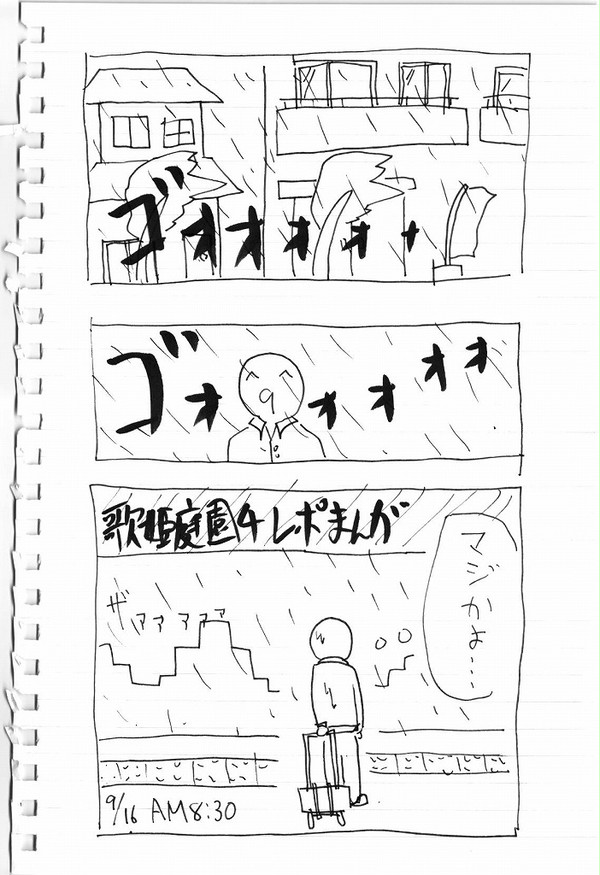 ゴオオオオォ
ゴオォオオオ
歌姫庭園4レポまんが
マジかよ…
ザァァァァァ
9/16 AM8:30